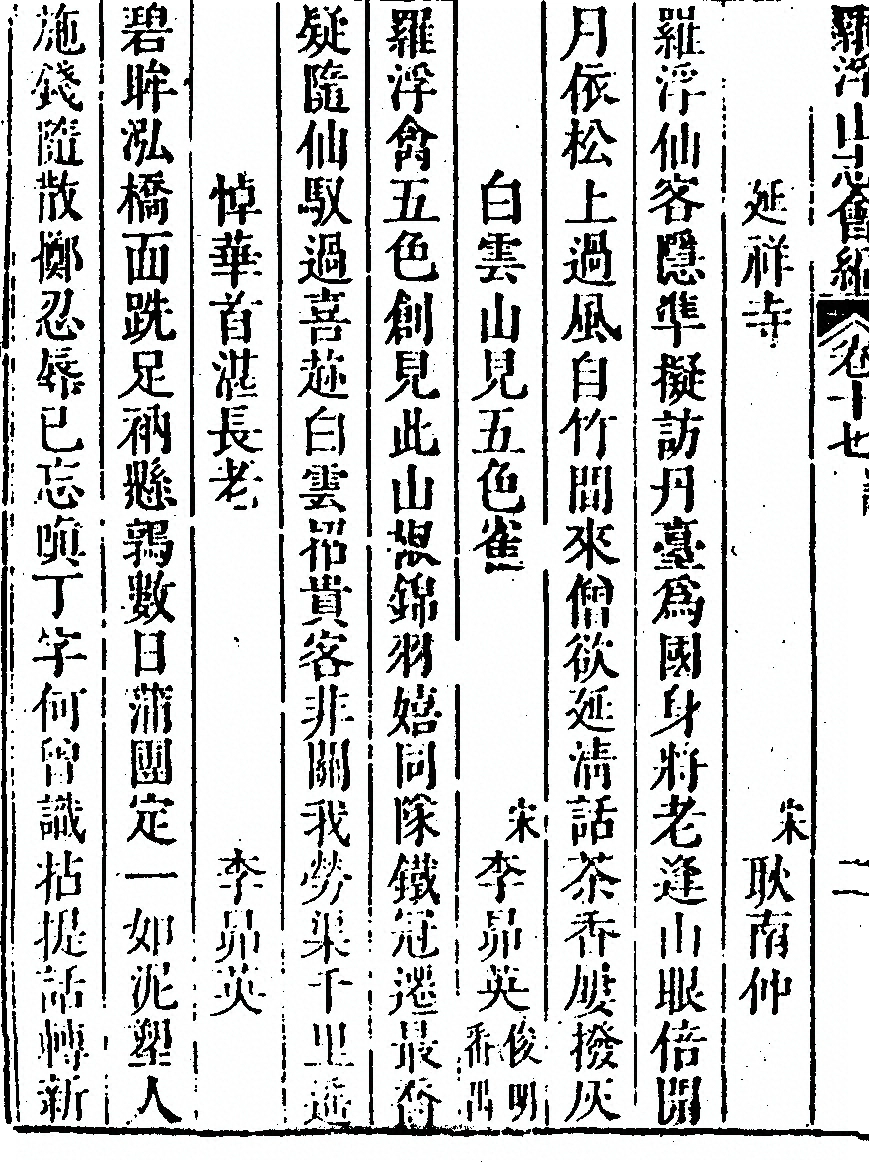 羅浮山志會編 卷十七 二
延祥寺 宋 耿南仲
羅浮仙客隱準擬訪丹臺爲國身將老逢山眼倍開
月依松上過風自竹間來僧欲延清話茶香屢撥灰
白雲山見五色雀 宋 李昴英 俊明 番禺
羅浮禽五色創見此山根錦羽嬉同隊鐵冠遝最
疑隨仙馭過喜逐白雲 貴客非關我勞渠千里
悼華首湛長老 李昴英
碧眸泓橋面跣足衲懸鶉數日蒲團定一如泥塑人
施錢隨散擲忍辱已忘嗔丁字何曾識拈提話轉新